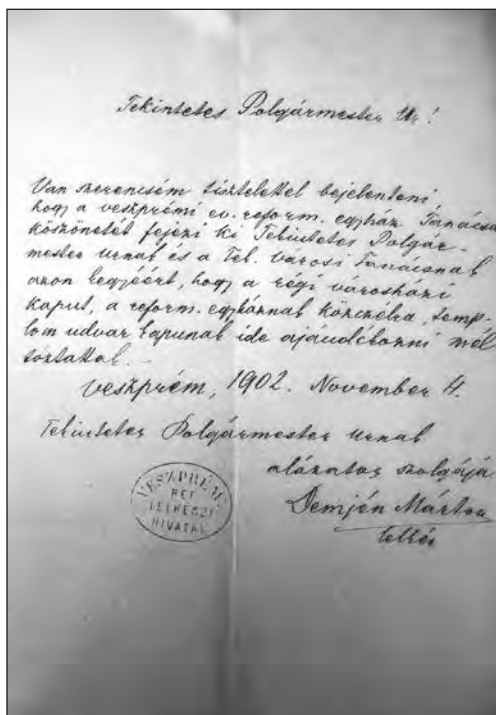 Tekintetes Polgármester Ur!
Van szerencsém tisztelettel bejelenteni,
hogy a veszprémi ev. reform. egyház Tanácsa
köszönetét fejezi ki Tekintetes Polgár-
mester Urnak és a Tek. városi Tanácsnak
azon kegyéért, hogy a régi városházi
kaput, a reform. egyháznak közcélra, temp-
lom udvar kapunak ide ajándékozni mél-
tóztattak.
Veszprém, 1902. November 4.
Tekintetes Polgármester Urnak
alázatos szolgája
Demjén Márton
lelkész
VESZPRÉMI
REF.
LELKÉSZI
HIVATAL